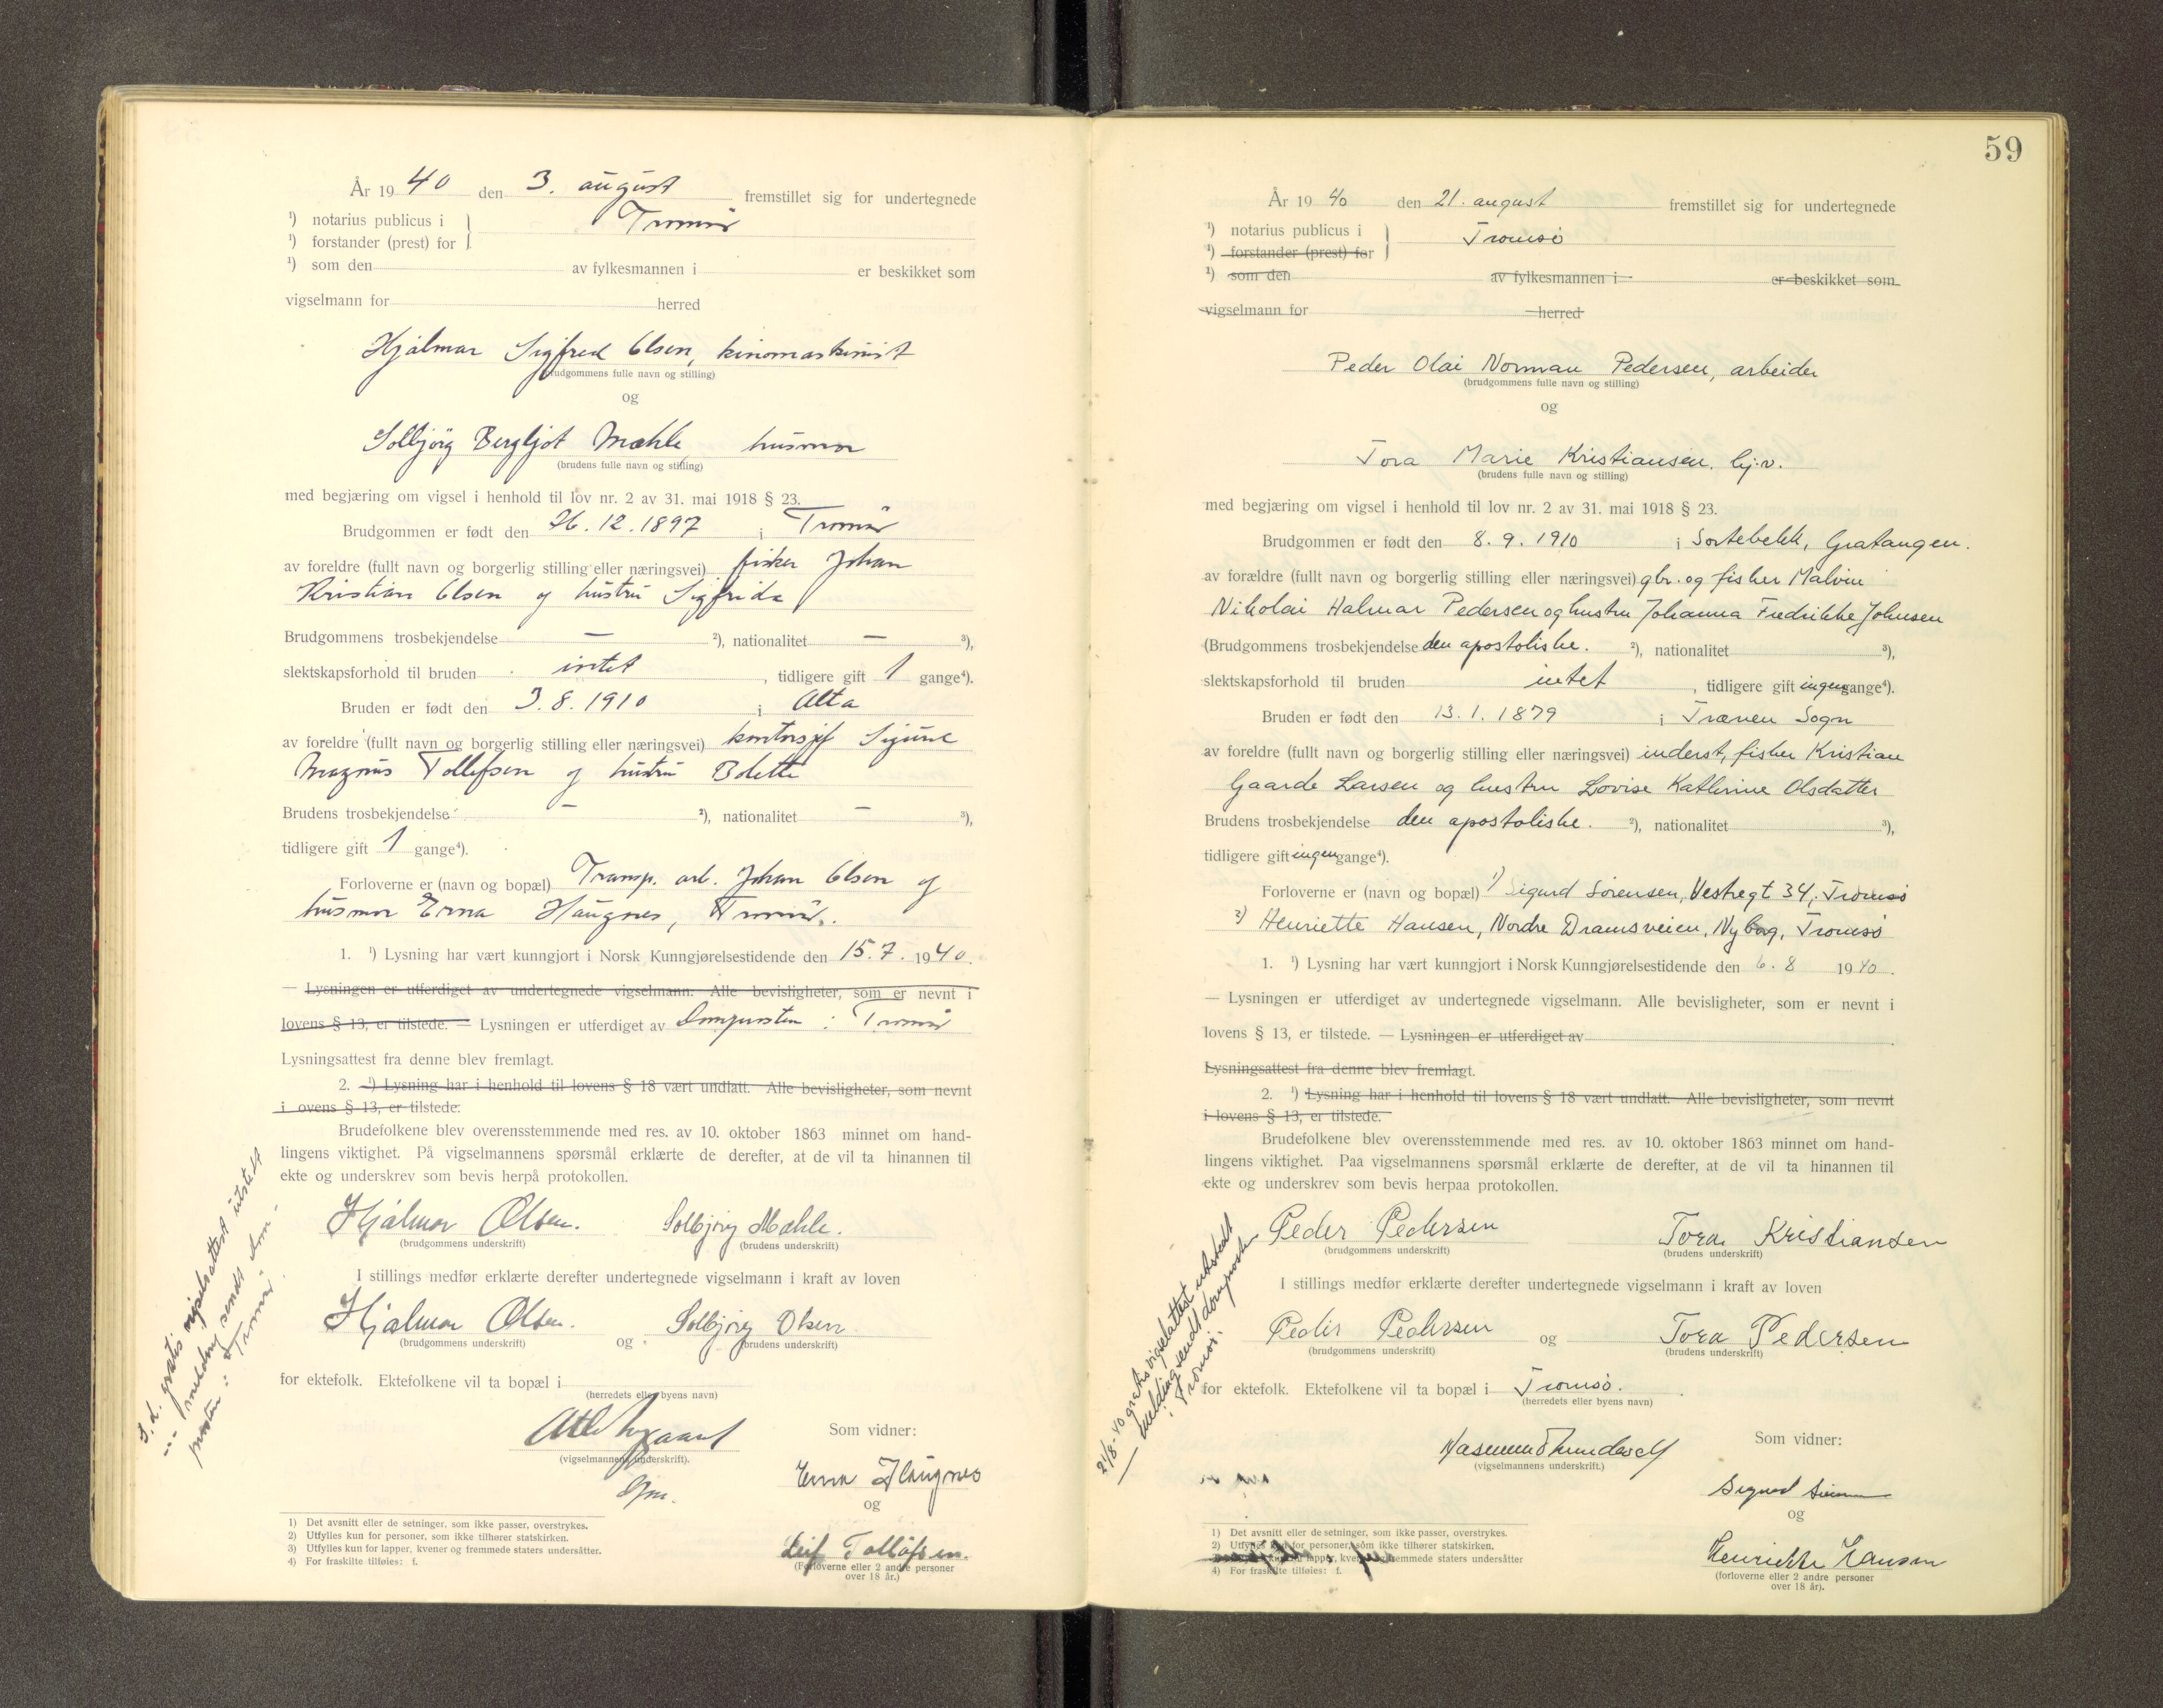 År 19 40 den 3. august fremstillet sig for undertegnede
¹) notarius publicus i } Tromsö
¹) forstander (prest) for
¹) som den av fylkesmannen i er beskikket som
vigselmann for herred
Hjalmar Sigfred Olsen, kinomaskinist
(brudgommens fulle navn og stilling)
og
Solbjörg Bergljot Mæhle husmor
(brudens fulle navn og stilling)
med begjæring om vigsel i henhold til lov nr. 2 av 31. mai 1918 § 23.
Brudgommen er født den 26.12.1897 i Tromsö
av foreldre (fullt navn og borgerlig stilling eller næringsvei) fisker Johan
Kristian Olsen og hustru Sigfrida
Brudgommens trosbekjendelse — ²), nationalitet — ³),
slektskapsforhold til bruden intet, tidligere gift 1 gange⁴).
Bruden er født den 3.8.1910 i Alta
av foreldre (fullt navn og borgerlig stilling eller næringsvei) kontorsjef Sigurd
Magnus Tollefsen og hustru Bolette
Brudens trosbekjendelse — ²), nationalitet — ³),
tidligere gift 1 gange⁴).
Forloverne er (navn og bopæl) Transp. arb. Johan Olsen og
husmor Erna Haugnes, Tromsö.
1. ¹) Lysning har vært kunngjort i Norsk Kunngjørelsestidende den 15.7.1940.
— Lysningen er utferdiget av undertegnede vigselmann. Alle bevisligheter, som er nevnt i
lovens § 13, er tilstede. — Lysningen er utferdiget av Domprosten i Tromsö
Lysningsattest fra denne blev fremlagt.
2. ¹) Lysning har i henhold til lovens § 18 vært undlatt. Alle bevisligheter, som nevnt
i ovens § 13, er tilstede.
Brudefolkene blev overensstemmende med res. av 10. oktober 1863 minnet om hand-
lingens viktighet. På vigselmannens spørsmål erklærte de derefter, at de vil ta hinannen til
ekte og underskrev som bevis herpå protokollen.
Hjalmar Olsen. Solbjörg Mæhle.
(brudgommens underskrift) (brudens underskrift)
I stillings medfør erklærte derefter undertegnede vigselmann i kraft av loven
Hjalmar Olsen. og Solbjörg Olsen
(brudgommens underskrift) (brudens underskrift)
for ektefolk. Ektefolkene vil ta bopæl i
(herredets eller byens navn)
Som vidner:
(vigselmannens underskrift).
Erna Haugnes
og
Leif Tollefsen.
(Forloverne eller 2 andre personer
over 18 år.)
1) Det avsnitt eller de setninger, som ikke passer, overstrykes.
2) Utfylles kun for personer, som ikke tilhører statskirken.
3) Utfylles kun for lapper, kvener og fremmede staters undersåtter.
4) For fraskilte tilføies: f.
S.d. gratis vigselsattest utstedt
— " — melding sendt dom-
prosten i Tromsö.
59
År 19 40 den 21. august fremstillet sig for undertegnede
¹) notarius publicus i } Tromsö
¹) forstander (prest) for
¹) som den av fylkesmannen i er beskikket som
vigselmann for herred
Peder Olai Norman Pedersen, arbeider
(brudgommens fulle navn og stilling)
og
Tora Marie Kristiansen, hj.v.
(brudens fulle navn og stilling)
med begjæring om vigsel i henhold til lov nr. 2 av 31. mai 1918 § 23.
Brudgommen er født den 8.9.1910 i Sortebekk, Gratangen.
av forældre (fullt navn og borgerlig stilling eller næringsvei) gbr. og fisker Malvin
Nikolai Halmar Pedersen og hustru Johanna Fredrikke Johnsen
(Brudgommens trosbekjendelse den apostoliske. ²), nationalitet ³),
slektskapsforhold til bruden intet, tidligere gift ingen gange⁴).
Bruden er født den 13.1.1879 i Trænen Sogn
av foreldre (fullt navn og borgerlig stilling eller næringsvei) inderst, fisker Kristian
Gaarde Larsen og hustru Lovise Kathrine Olsdatter
Brudens trosbekjendelse den apostoliske. ²), nationalitet ³),
tidligere gift ingen gange⁴).
Forloverne er (navn og bopæl) 1) Sigurd Sörensen, Vestregt 34, Tromsö
2) Henriette Hansen, Nordre Dramsveien, Nyborg, Tromsö
1. ¹) Lysning har vært kunngjort i Norsk Kunngjørelsestidende den 6.8 1940.
— Lysningen er utferdiget av undertegnede vigselmann. Alle bevisligheter, som er nevnt i
lovens § 13, er tilstede. — Lysningen er utferdiget av
Lysningsattest fra denne blev fremlagt.
2. ¹) Lysning har i henhold til lovens § 18 vært undlatt. Alle bevisligheter, som nevnt
i lovens § 13, er tilstede.
Brudefolkene blev overensstemmende med res. av 10. oktober 1863 minnet om hand-
lingens viktighet. Paa vigselmannens spørsmål erklærte de derefter, at de vil ta hinannen til
ekte og underskrev som bevis herpaa protokollen.
Peder Pedersen Tora Kristiansen
(brudgommens underskrift) (brudens underskrift)
I stillings medfør erklærte derefter undertegnede vigselmann i kraft av loven
Peder Pedersen og Tora Pedersen
(brudgommens underskrift) (brudens underskrift)
for ektefolk. Ektefolkene vil ta bopæl i Tromsö.
(herredets eller byens navn)
Som vidner:
(vigselmannens underskrift.)
Sigurd
og
Henriette Hansen
(forloverne eller 2 andre personer
over 18 år).
1) Det avsnitt eller de setninger, som ikke passer, overstrykes.
2) Utfylles kun for personer, som ikke tilhører statskirken.
3) Utfylles kun for lapper, kvener og fremmede staters undersåtter
4) For fraskilte tilføies: f.
21/8-40 gratis vigselattest utstedt
— melding sendt domprosten
i Tromsö.